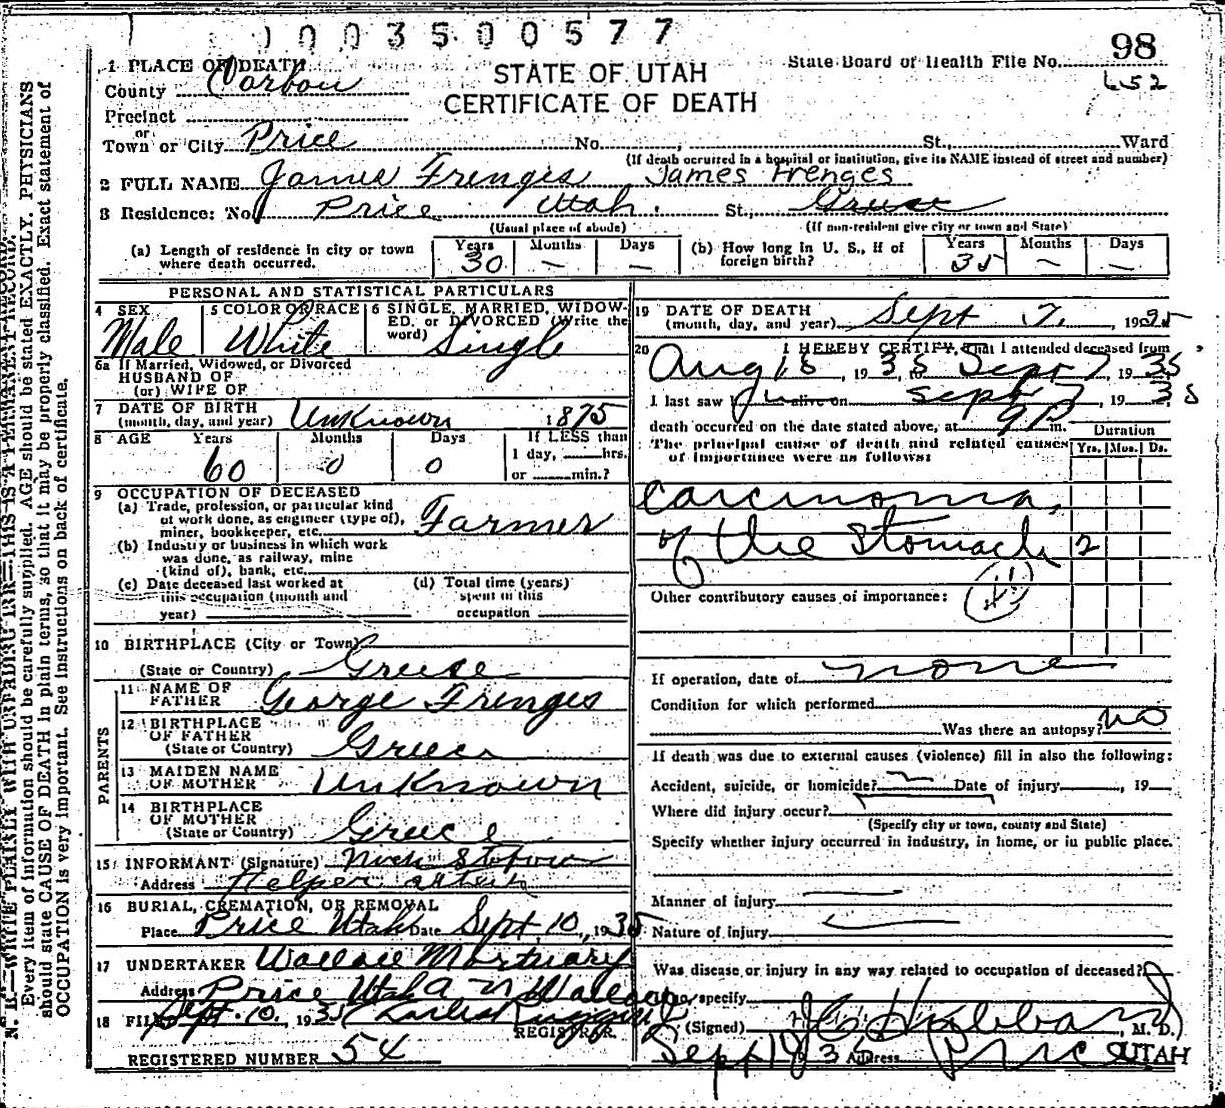 0003500577
98
1 PLACE OF DEATH
County Carbon
STATE OF UTAH
CERTIFICATE OF DEATH
State Board of Health File No.
652
Precinct
or
Town or City Price No. St., Ward
(If death occurred in a hospital or institution, give its NAME instead of street and number)
2 FULL NAME James Frenges James Frenges
3 Residence: No. Price Utah. St., Greece
(Usual place of abode) (If non-resident give city or town and State)
(a) Length of residence in city or town where death occurred. Years 30 Months — Days —
(b) How long in U. S., if of foreign birth? Years 35 Months — Days —
PERSONAL AND STATISTICAL PARTICULARS
4 SEX Male
5 COLOR OR RACE White
6 SINGLE, MARRIED, WIDOWED, or DIVORCED (Write the word) Single
6a If Married, Widowed, or Divorced
HUSBAND OF
(or) WIFE OF
7 DATE OF BIRTH
(month, day, and year) Unknown 1875
8 AGE Years 60 Months 0 Days 0 If LESS than
1 day, hrs.
or min.?
9 OCCUPATION OF DECEASED
(a) Trade, profession, or particular kind
of work done, as engineer (type of),
miner, bookkeeper, etc. Farmer
(b) Industry or business in which work
was done, as railway, mine
(kind of), bank, etc.
(c) Date deceased last worked at
this occupation (month and
year)
(d) Total time (years)
spent in this
occupation
10 BIRTHPLACE (City or Town)
(State or Country) Greese
PARENTS
11 NAME OF
FATHER George Frenges
12 BIRTHPLACE
OF FATHER
(State or Country) Greece
13 MAIDEN NAME
OF MOTHER Unknown
14 BIRTHPLACE
OF MOTHER
(State or Country) Greece
15 INFORMANT (Signature) Nick
Address Helper
16 BURIAL, CREMATION, OR REMOVAL
Place Price Utah Date Sept 10, 1935
17 UNDERTAKER Wallace Mortuary
Address Price Utah
18 FILED Sept. 10, 1935
REGISTRAR.
REGISTERED NUMBER 54
19 DATE OF DEATH
(month, day, and year) Sept 7, 1935
20 I HEREBY CERTIFY, that I attended deceased from
Aug 15, 1935 Sept 7 1935
I last saw alive on Sept 7, 1935
death occurred on the date stated above, at 9 P m.
The principal cause of death and related causes
of importance were as follows:
Duration
Yrs. Mos. Ds.
carcinoma,
of the Stomach 2
Other contributory causes of importance:
If operation, date of none
Condition for which performed
Was there an autopsy? no
If death was due to external causes (violence) fill in also the following:
Accident, suicide, or homicide? Date of injury , 19
Where did injury occur?
(Specify city or town, county and State)
Specify whether injury occurred in industry, in home, or in public place.
Manner of injury
Nature of injury
Was disease or injury in any way related to occupation of deceased?
specify
(Signed) Hubbard, M. D.
Sept 35 Address Price UTAH
N. B.—WRITE PLAINLY WITH UNFADING INK—THIS IS A PERMANENT RECORD.
Every item of information should be carefully supplied. AGE should be stated EXACTLY. PHYSICIANS
should state CAUSE OF DEATH in plain terms, so that it may be properly classified. Exact statement of
OCCUPATION is very important. See instructions on back of certificate.